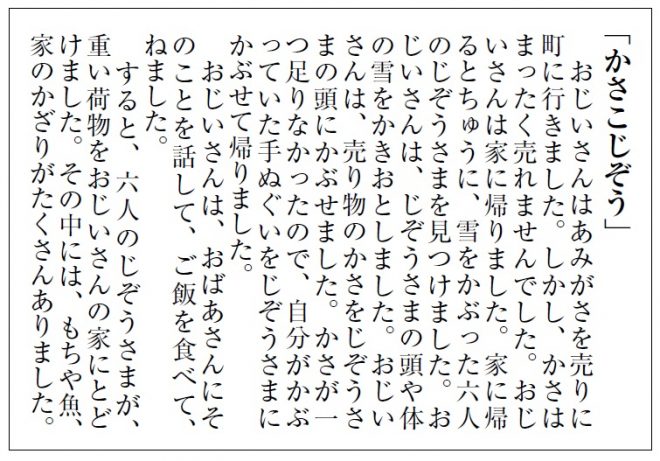 「かさこじぞう」
　おじいさんはあみがさを売りに
町に行きました。しかし、かさは
まったく売れませんでした。おじ
いさんは家に帰りました。家に帰
るとちゅうに、雪をかぶった六人
のじぞうさまを見つけました。お
じいさんは、じぞうさまの頭や体
の雪をかきおとしました。おじい
さんは、売り物のかさをじぞうさ
まの頭にかぶせました。かさが一
つ足りなかったので、自分がかぶ
っていた手ぬぐいをじぞうさまに
かぶせて帰りました。
　おじいさんは、おばあさんにそ
のことを話して、ご飯を食べて、
ねました。
　すると、六人のじぞうさまが、
重い荷物をおじいさんの家にとど
けました。その中には、もちや魚、
家のかざりがたくさんありました。